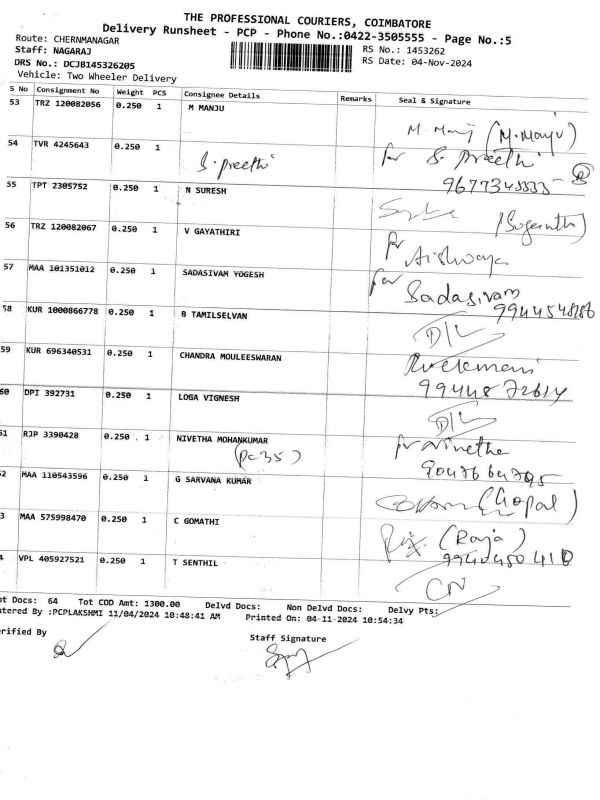 THE PROFESSIONAL COURIERS, COIMBATORE
Delivery Runsheet - PCP - Phone No.:0422-3505555 - Page No.:5
Route: CHERNMANAGAR
RS No.: 1453262
Staff: NAGARAJ
RS Date: 04-Nov-2024
DRS No.: DCJB145326205
Vehicle: Two Wheeler Delivery
S No Consignment No Weight PCS Consignee Details Remarks Seal & Signature
53 TRZ 120082056 0.250 1 M MANJU
(M.Manju)
54 TVR 4245643 0.250 1
S. preethi
for S. Preethi
55 TPT 2305752 0.250 1 N SURESH
56 TRZ 120082067 0.250 1 V GAYATHIRI
for
57 MAA 101351012 0.250 1 SADASIVAM YOGESH
for Sadasivam
58 KUR 1000866778 0.250 1 B TAMILSELVAN
D/L
59 KUR 696340531 0.250 1 CHANDRA MOULEESWARAN
60 DPI 392731 0.250 1 LOGA VIGNESH
D/L
51 RJP 3390428 0.250 1 NIVETHA MOHANKUMAR
(PC35)
52 MAA 110543596 0.250 1 G SARVANA KUMAR
(Gopal)
3 MAA 575998470 0.250 1 C GOMATHI
(Raja)
4 VPL 405927521 0.250 1 T SENTHIL
ot Docs: 64 Tot COD Amt: 1300.00 Delvd Docs: Non Delvd Docs: Delvy Pts:
ntered By :PCPLAKSHMI 11/04/2024 10:48:41 AM Printed On: 04-11-2024 10:54:34
erified By
Staff Signature